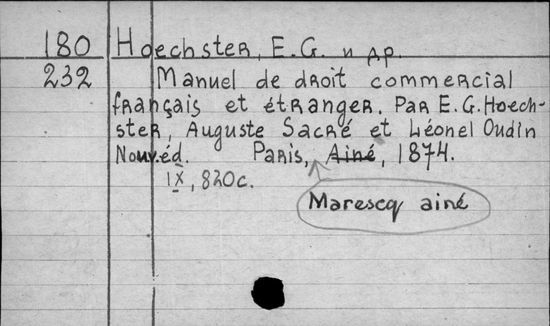 180 Hoechster, E.G. и др.
232 Manuel de droit commercial
français et étranger. Par E.G. Hoech-
ster, Auguste Sacré et Léonel Oudin
Nouv.éd. Paris, Ainé, 1874.
IX, 820c.
Marescq ainé